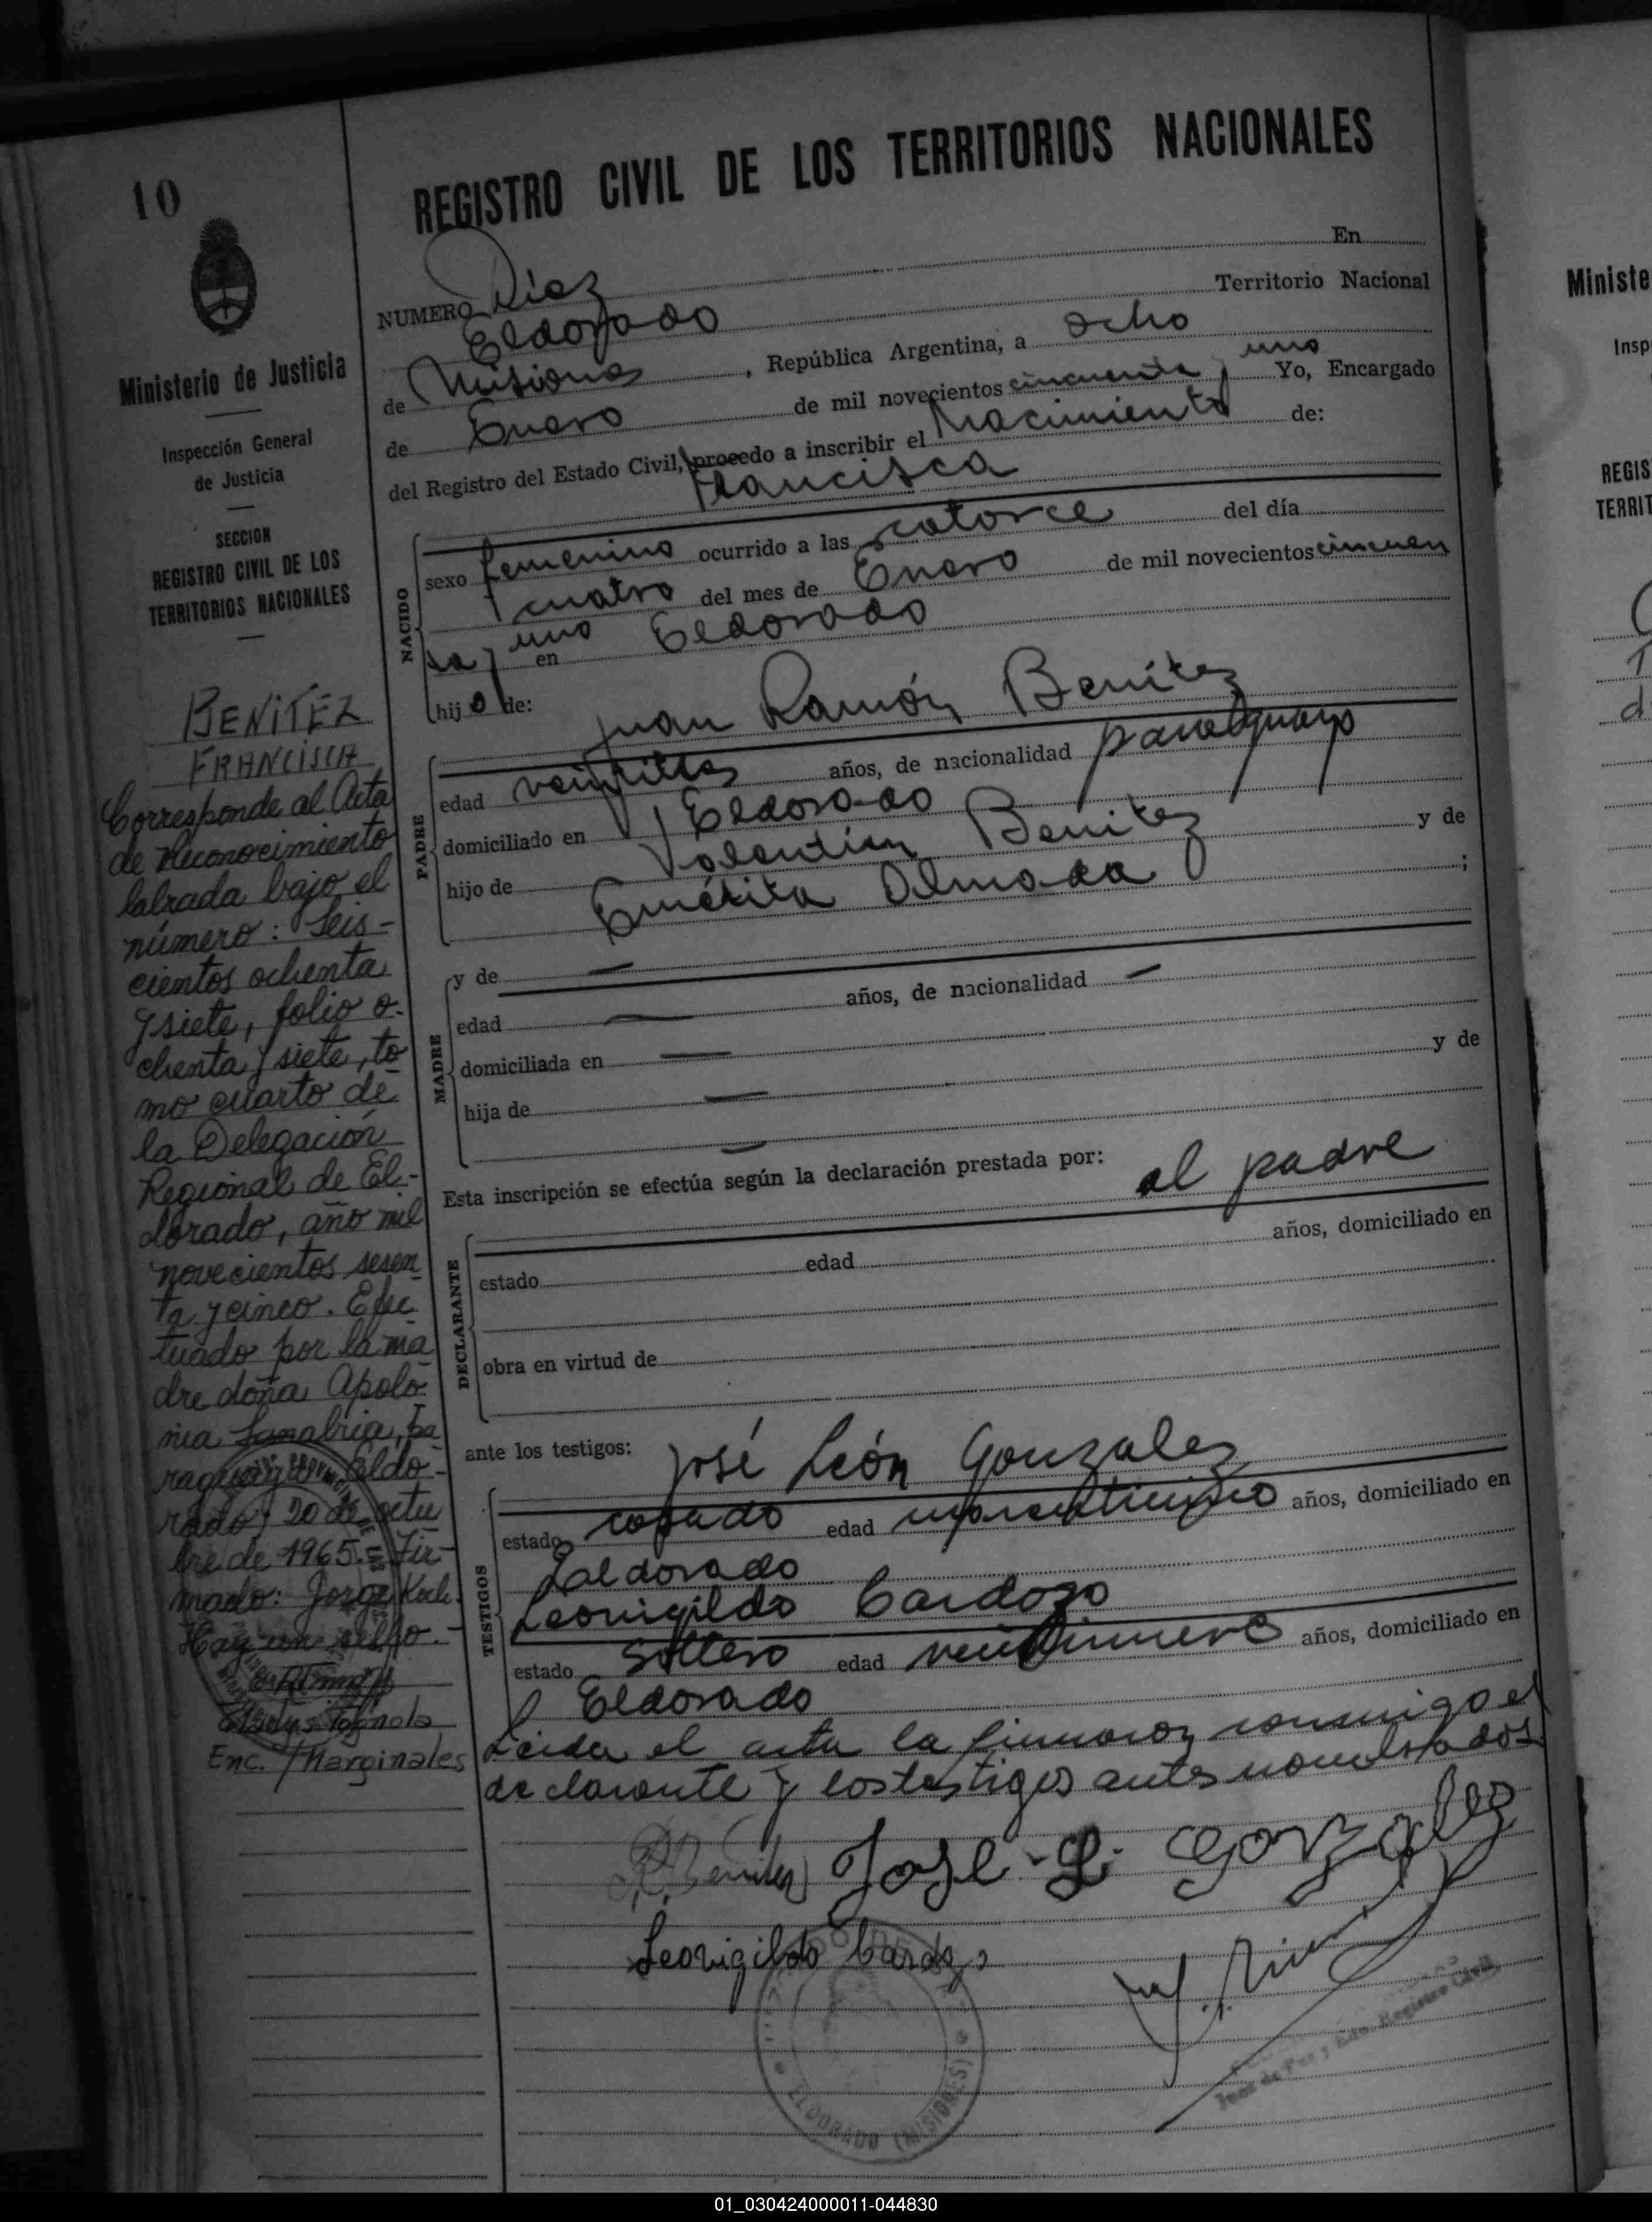 10
Ministerio de Justicia
Inspección General
de Justicia
SECCION
REGISTRO CIVIL DE LOS
TERRITORIOS NACIONALES
BENITEZ
FRANCISCA
Corresponde al Acta
de Reconocimiento
labrada bajo el
número: Seis-
cientos ochenta
y siete, folio o-
chenta y siete, to
mo cuarto de
la Delegación
Regional de El-
dorado, año mil
novecientos sesen
ta y cinco. Efec
tuado por la ma
dre doña Apolo
nia Sanabria, pa
raguaya. Eldo-
rado, 20 de octu
bre de 1965. Fir-
mado: Jorge Koch.
Hay un sello.-
Gladys Tognola
Enc. / Marginales
REGISTRO CIVIL DE LOS TERRITORIOS NACIONALES
NUMERO Diez En
Eldorado Territorio Nacional
de Misiones, República Argentina, a ocho
de Enero de mil novecientos cincuenta y uno Yo, Encargado
del Registro del Estado Civil, procedo a inscribir el Nacimiento de:
Francisca
NACIDO
sexo femenino ocurrido a las catorce del día
cuatro del mes de Enero de mil novecientos cincuen
ta y uno en Eldorado
hijo de:
Juan Ramón Benítez
PADRE
edad años, de nacionalidad paraguayo
domiciliado en Eldorado
hijo de Valentín Benitez y de
Emérita Almada ;
MADRE
y de —
edad — años, de nacionalidad —
domiciliada en —
hija de — y de
—
Esta inscripción se efectúa según la declaración prestada por: el padre
DECLARANTE
estado edad años, domiciliado en
obra en virtud de
ante los testigos: José León Gonzalez
TESTIGOS
estado casado edad años, domiciliado en
Eldorado
Leovigildo Cardozo
estado soltero edad años, domiciliado en
Eldorado
Leida el acta la firmaron conmigo el
declarante y los testigos antes nombrados
R Benitez José L. Gonzalez
Leovigildo Cardozo
ELDORADO (MISIONES)
Juez de Paz y Edo. Registro Civil
Ministe
Insp
REGIS
TERRIT
01_030424000011-044830